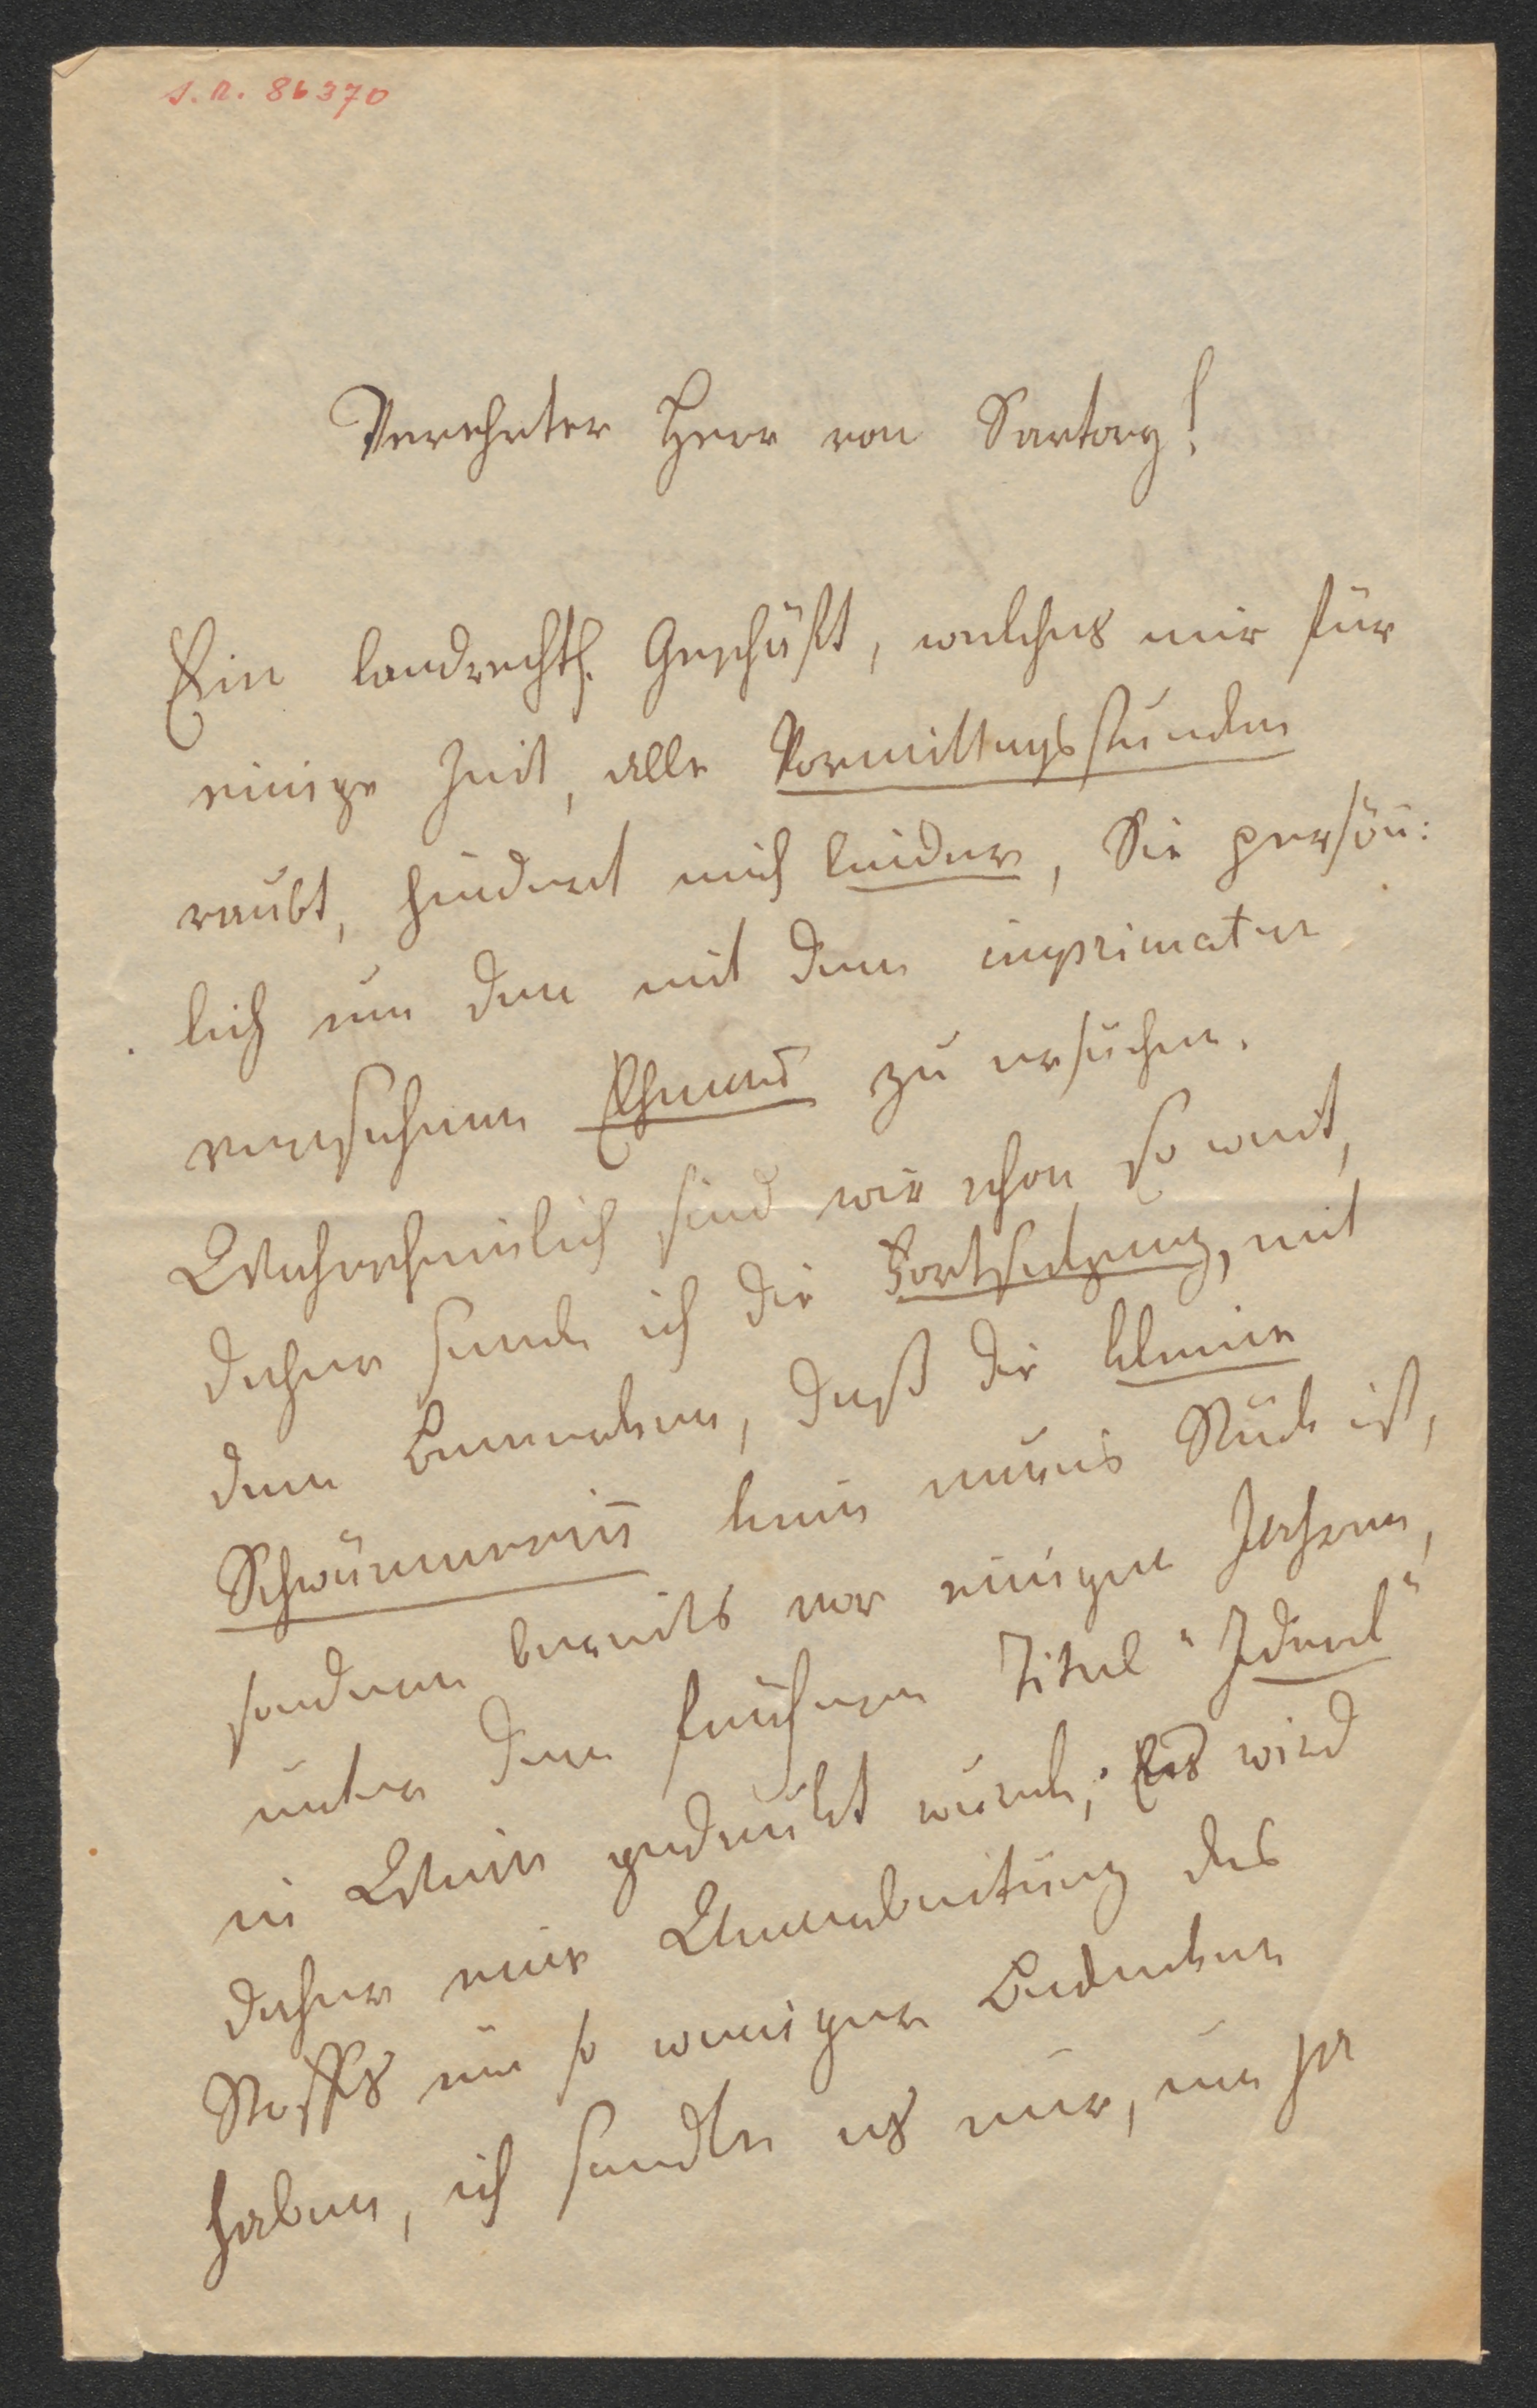 I.N. 86370
Verehrter Herr von Sartory!
Ein landrechtl. Geschäft, welches mir für
einige Zeit, alle Vormittagsstunden
raubt, hindert mich leider, Sie persön:
lich um den mit dem imprimatur
versehenen zu ersuchen.
Wahrscheinlich sind wir schon so weit,
daher sende ich die Fortsetzung, mit
dem Bemerken, daß die kleine
Schwärmerin kein neues Stück ist,
sondern bereits vor einigen Jahren,
unter dem früheren Titel "Ideal"
in Wien gedruckt wurde; Es wird
daher eine Umarbeitung des
Stoffes um so weniger Bedenken
haben, ich sandte es nur, um ja